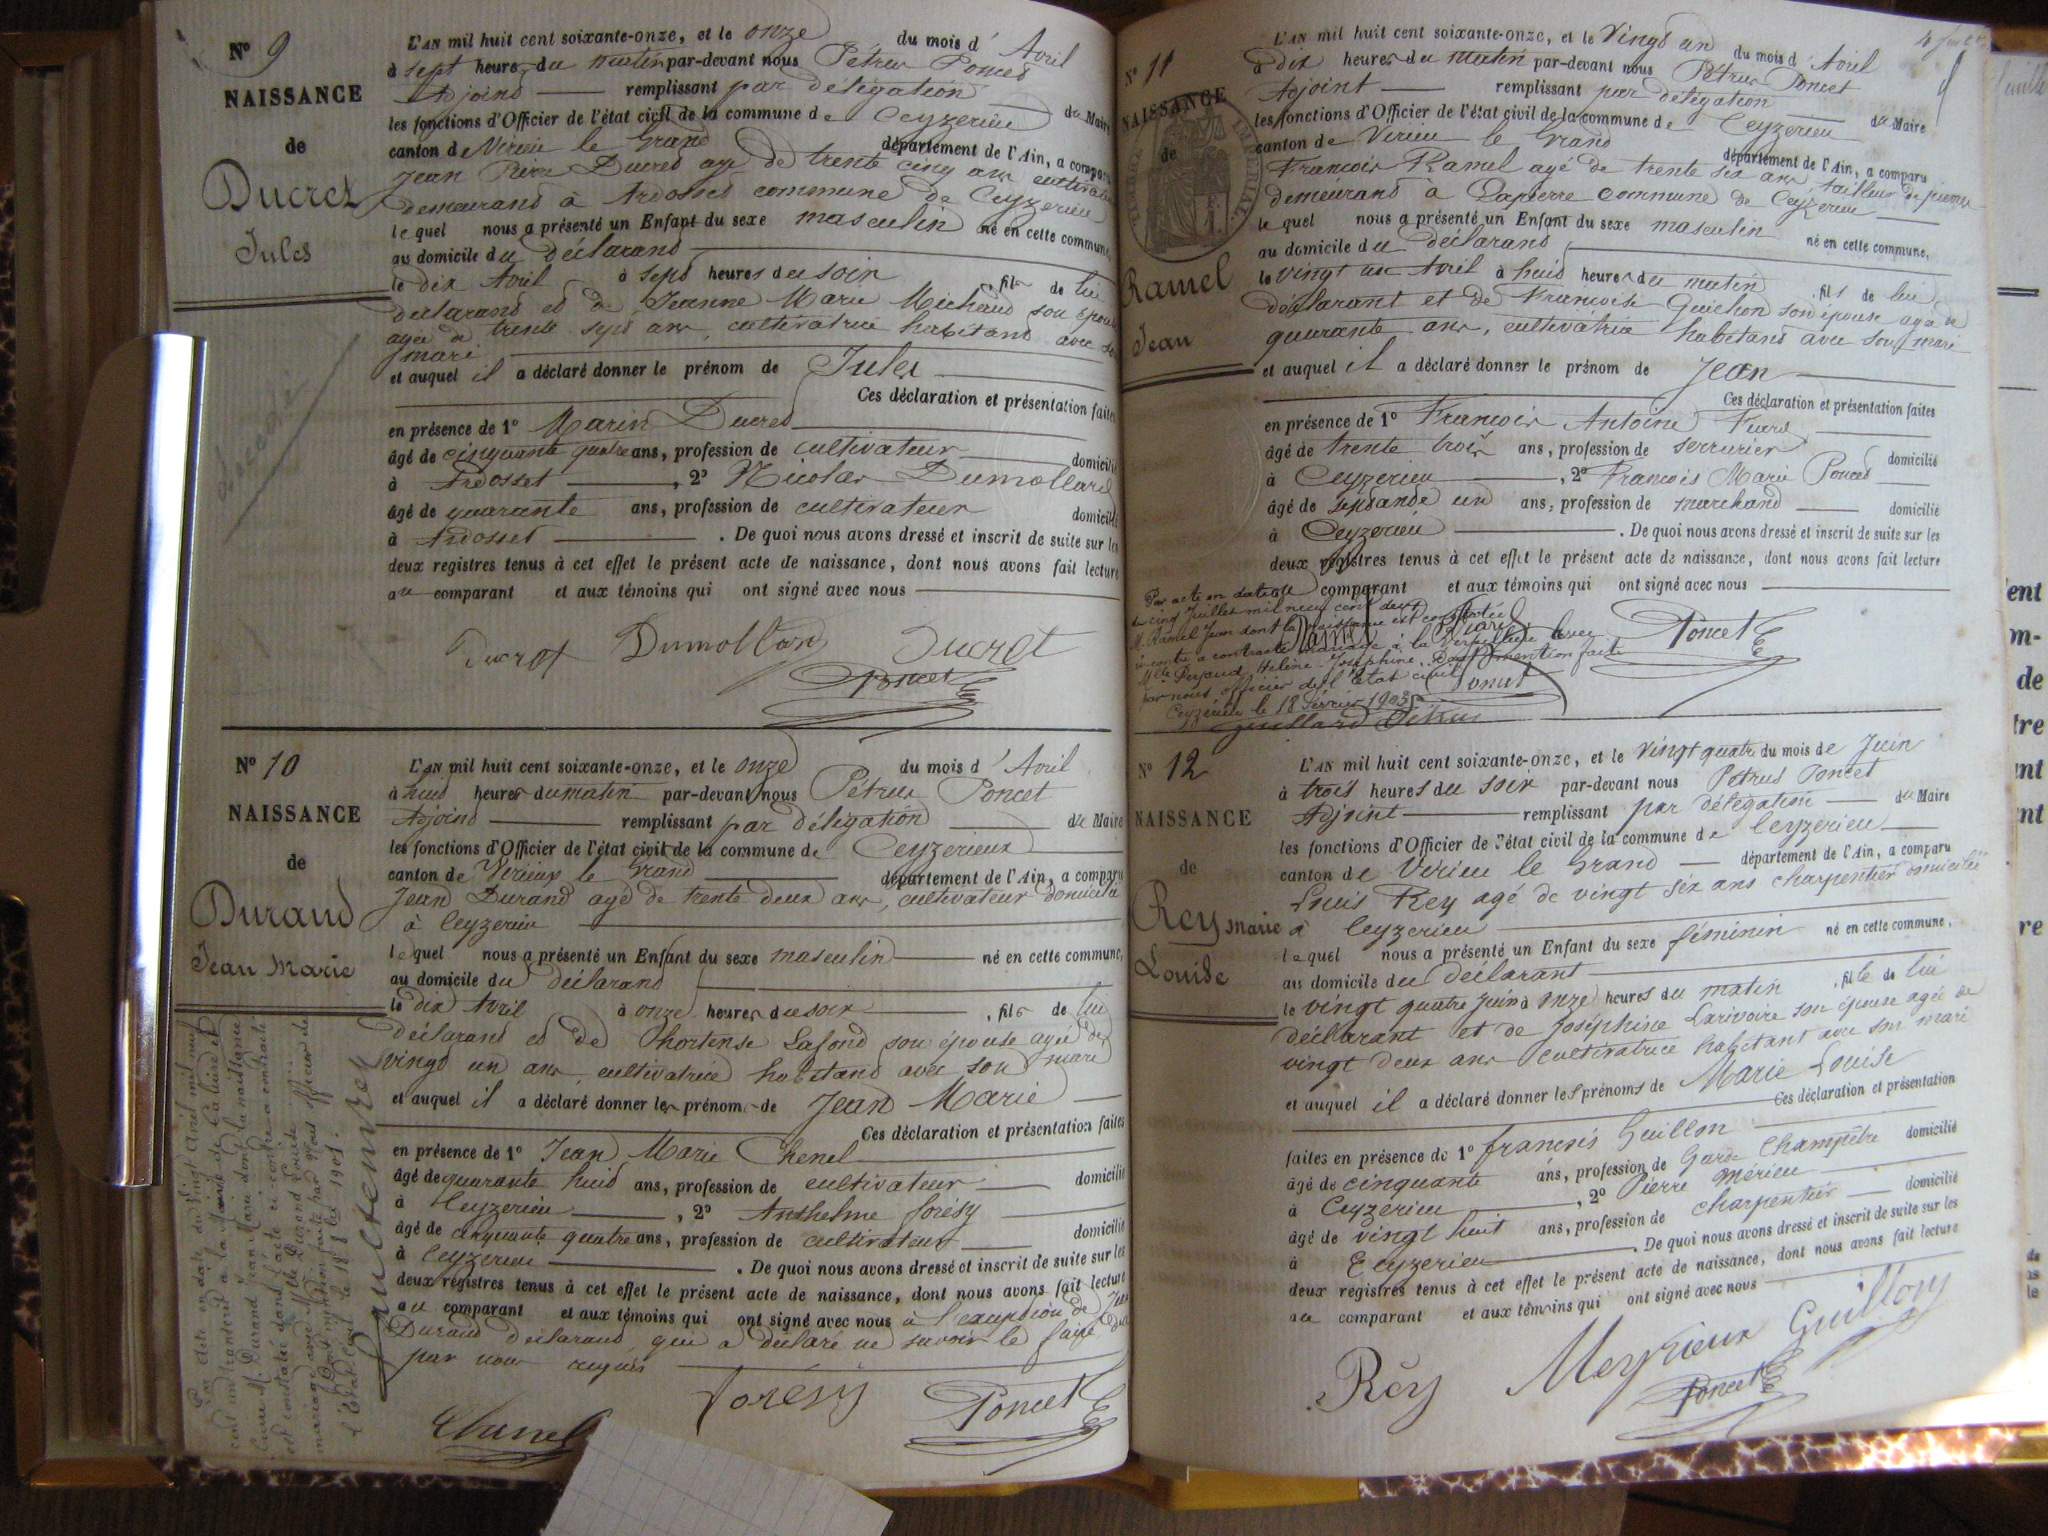 Nº 9
NAISSANCE
de
Ducret
Jules
L'AN mil huit cent soixante-onze, et le onze du mois d' Avril
à sept heures du matin par-devant nous Pétrus Poncet
Adjoint remplissant par délégation du Maire
les fonctions d'Officier de l'état civil de la commune de Ceyzerieu
canton de Virieu le Grand département de l'Ain, a comparu
Jean Pierre Ducret agé de trente cinq ans cultivateur
demeurant à Ardosset commune de Ceyzerieu
lequel nous a présenté un Enfant du sexe masculin né en cette commune,
au domicile du déclarant
le dix Avril à sept heures du soir, fils de lui
déclarant et de Jeanne Marie Michaud son épouse
agée de trente sept ans, cultivatrice habitant avec son
mari
et auquel il a déclaré donner le prénom de Jules
Ces déclaration et présentation faites
en présence de 1º Marin Ducret
âgé de cinquante quatre ans, profession de cultivateur domicilié
à Ardosset, 2º Nicolas Dumollard
âgé de quarante ans, profession de cultivateur domicilié
à Ardosset. De quoi nous avons dressé et inscrit de suite sur les
deux registres tenus à cet effet le présent acte de naissance, dont nous avons fait lecture
au comparant et aux témoins qui ont signé avec nous
Ducret Dumollard Ducret
Poncet
Nº 10
NAISSANCE
de
Durand
Jean Marie
L'AN mil huit cent soixante-onze, et le onze du mois d' Avril
à huit heures du matin par-devant nous Pétrus Poncet
Adjoint remplissant par délégation du Maire
les fonctions d'Officier de l'état civil de la commune de Ceyzerieux
canton de Virieux le Grand département de l'Ain, a comparu
Jean Durand agé de trente deux ans, cultivateur domicilié
à Ceyzerieu
lequel nous a présenté un Enfant du sexe masculin né en cette commune,
au domicile du déclarant
le dix Avril à onze heures du soir, fils de lui
déclarant et de Hortense Lafond son épouse agée de
vingt un ans, cultivatrice habitant avec son mari
et auquel il a déclaré donner les prénoms de Jean Marie
Ces déclaration et présentation faites
en présence de 1º Jean Marie Chenel
âgé de quarante huit ans, profession de cultivateur domicilié
à Ceyzerieu, 2º Anthelme Forésy
âgé de cinquante quatre ans, profession de cultivateur domicilié
à Ceyzerieu. De quoi nous avons dressé et inscrit de suite sur les
deux registres tenus à cet effet le présent acte de naissance, dont nous avons fait lecture
au comparant et aux témoins qui ont signé avec nous à l'exception de Jean
Durand déclarant, qui a déclaré ne savoir le faire de ce
par nous requis
Forésy Poncet
Par acte en date du vingt Avril mil neuf
cent un transcrit à la Mairie de Caluire et
Cuire M. Durand Jean Marie dont la naissance
est constatée dans l'acte ci-contre a contracté
mariage avec Mlle Durand Louise
Dont mention faite par nous officier de
l'Etat Civil le 18 1901.
Nº 11
NAISSANCE
de
Ramel
Jean
TIMBRE IMPÉRIAL
L'AN mil huit cent soixante-onze, et le Vingt un du mois d' Avril
à dix heures du matin par-devant nous Pétrus Poncet
Adjoint remplissant par délégation du Maire
les fonctions d'Officier de l'état civil de la commune de Ceyzerieu
canton de Virieu le Grand département de l'Ain, a comparu
François Ramel agé de trente six ans tailleur de pierres
demeurant à Lapierre commune de Ceyzerieu
lequel nous a présenté un Enfant du sexe masculin né en cette commune,
au domicile du déclarant
le vingt un Avril à huit heures du matin, fils de lui
déclarant et de Françoise Guichon son épouse agée de
quarante ans, cultivatrice habitant avec son mari
et auquel il a déclaré donner le prénom de Jean
Ces déclaration et présentation faites
en présence de 1º François Antoine
âgé de trente trois ans, profession de serrurier domicilié
à Ceyzerieu, 2º François Marie Poncet
âgé de soixante un ans, profession de marchand domicilié
à Ceyzerieu. De quoi nous avons dressé et inscrit de suite sur les
deux registres tenus à cet effet le présent acte de naissance, dont nous avons fait lecture
au comparant et aux témoins qui ont signé avec nous
Ramel Poncet
Poncet
Par acte en date du
cinq Juillet mil neuf cent deux
M. Ramel Jean dont la naissance est constatée
ci-contre a contracté mariage à la Verpillière avec
Mlle Hélène Joséphine. Dont mention faite
par nous officier de l'Etat civil
Ceyzérieu le 18 Février 1903
Nº 12
NAISSANCE
de
Rey Marie
Louise
L'AN mil huit cent soixante-onze, et le vingt quatre du mois de Juin
à trois heures du soir par-devant nous Pétrus Poncet
Adjoint remplissant par délégation du Maire
les fonctions d'Officier de l'état civil de la commune de Ceyzerieu
canton de Virieu le Grand département de l'Ain, a comparu
Louis Rey agé de vingt six ans charpentier domicilié
à Ceyzerieu
lequel nous a présenté un Enfant du sexe féminin né en cette commune,
au domicile du déclarant
le vingt quatre Juin à onze heures du matin, fille de lui
déclarant et de Joséphine Larivoire son épouse agée de
vingt deux ans cultivatrice habitant avec son mari
et auquel il a déclaré donner les prénoms de Marie Louise
Ces déclaration et présentation
faites en présence de 1º françois Guillon
âgé de cinquante ans, profession de Garde Champêtre domicilié
à Ceyzerieu, 2º Pierre Mérieu
âgé de vingt huit ans, profession de charpentier domicilié
à Ceyzerieu. De quoi nous avons dressé et inscrit de suite sur les
deux registres tenus à cet effet le présent acte de naissance, dont nous avons fait lecture
au comparant et aux témoins qui ont signé avec nous
Rey Meyrieux Guillon
Poncet